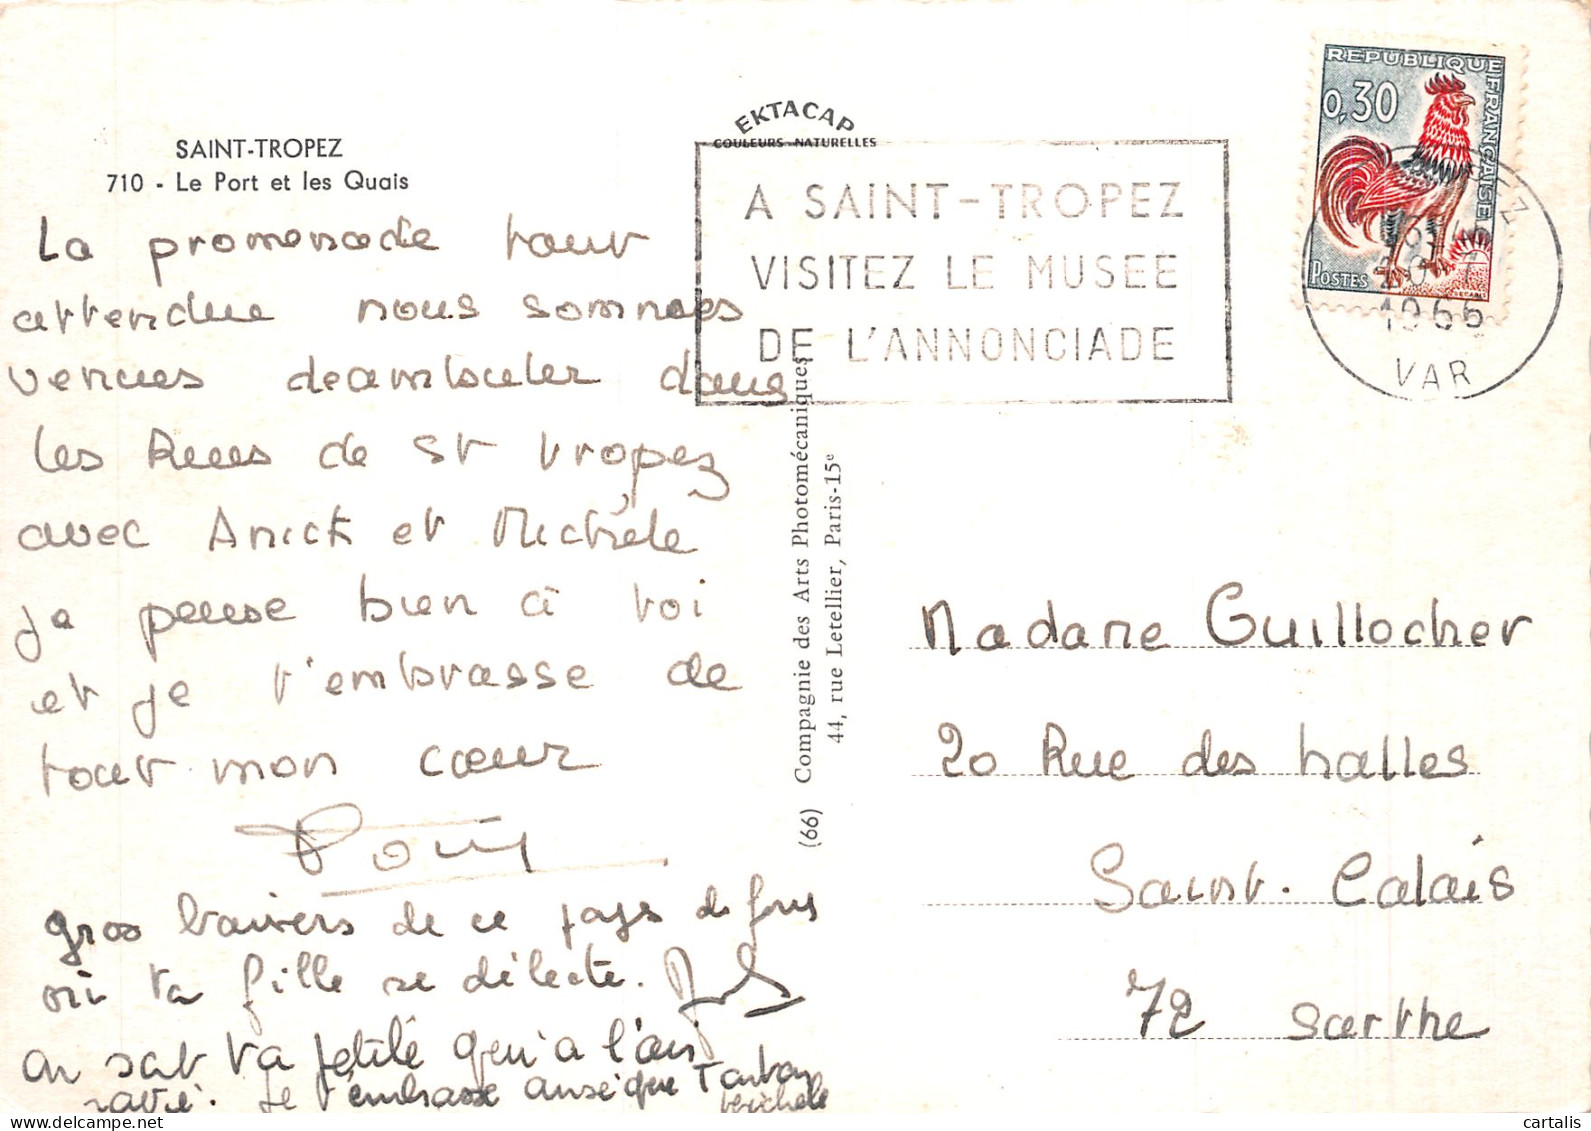 SAINT-TROPEZ
710 - Le Port et les Quais
EKTACAP
COULEURS NATURELLES
A SAINT-TROPEZ
VISITEZ LE MUSEE
DE L'ANNONCIADE
REPUBLIQUE FRANÇAISE
0,30
POSTES
1966
VAR
La promenade tant
attendue nous sommes
venues deambuler dans
les Rues de St Tropez
avec Anick et Michèle
je pense bien à toi
et je t'embrasse de
tout mon cœur
Gros baisers de ce pays de
où ta fille se délecte.
on sat ta petite qui a l'air
ravie. Je t'embrasse ainsi que
Michele
(66) Compagnie des Arts Photomécaniques
44, rue Letellier, Paris-15e
Madame Guillocher
20 Rue des halles
Saint. Calais
72 Sarthe
cartalis